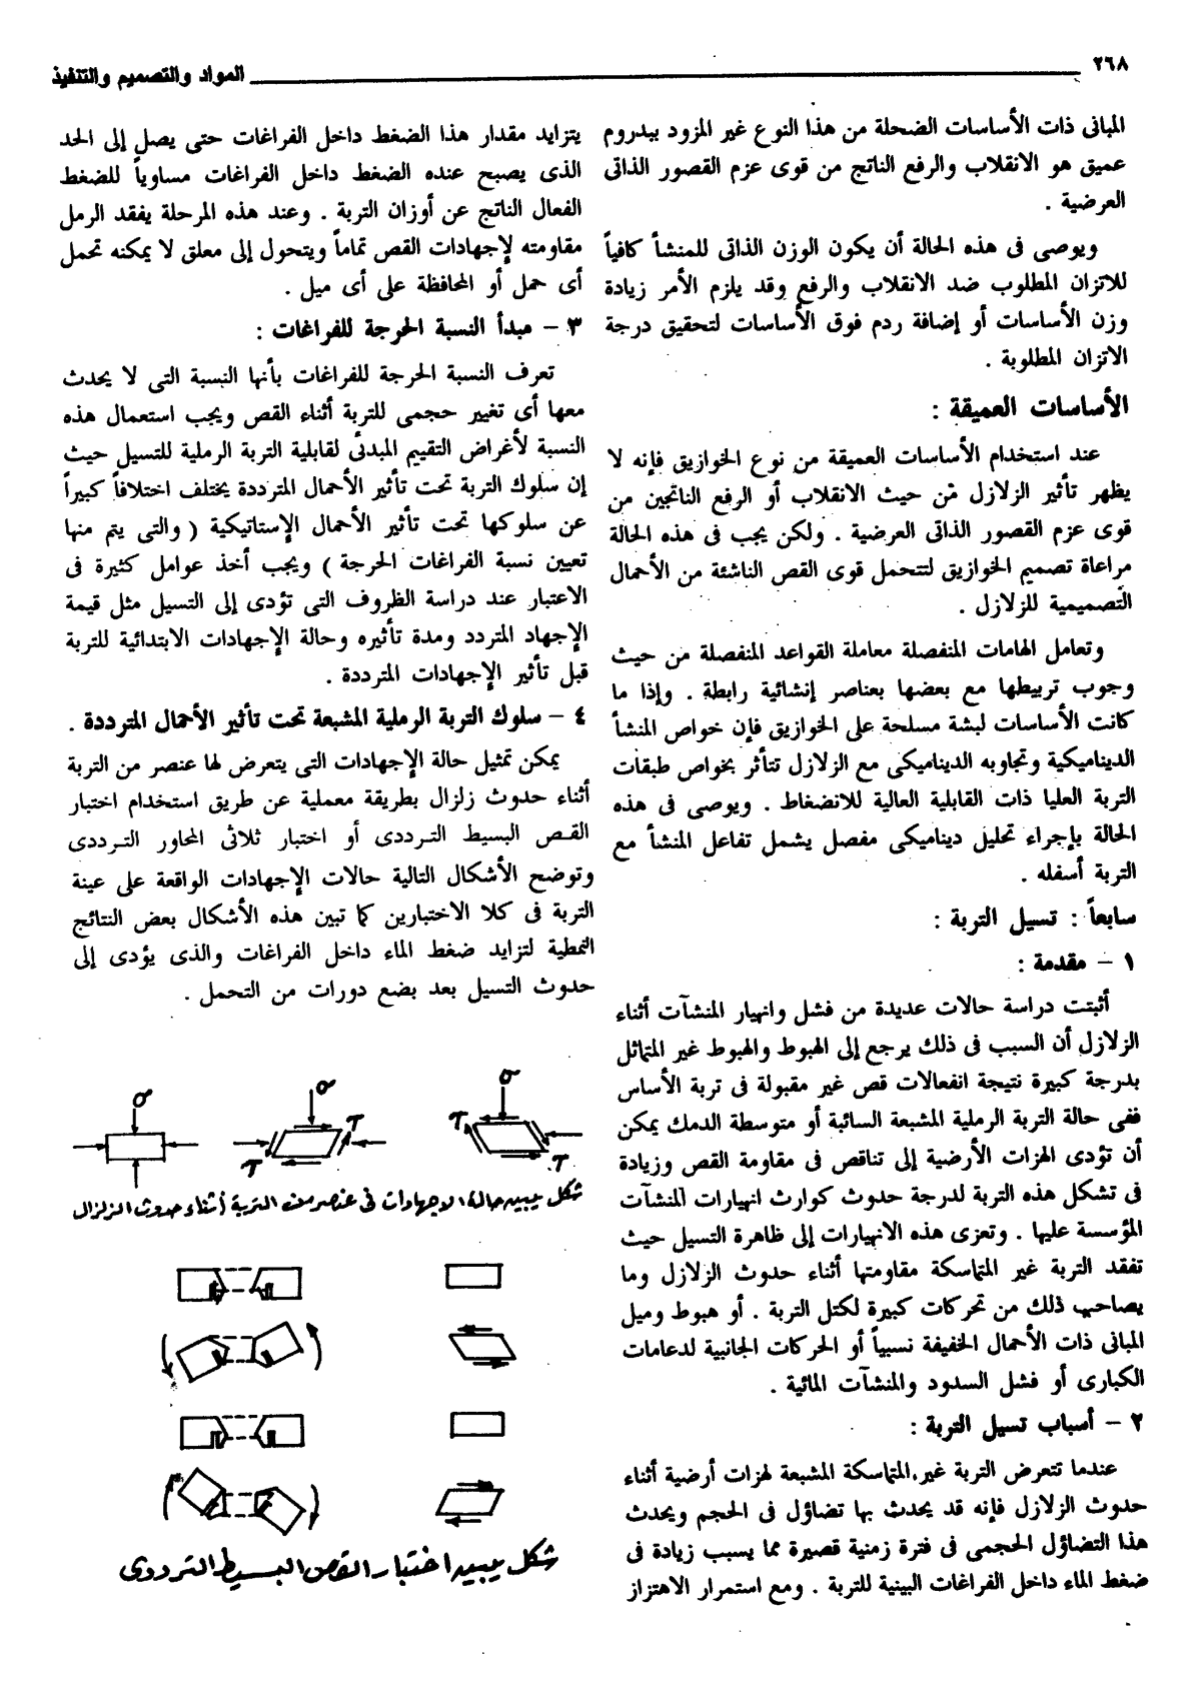 ٢٦٨
المواد والتصميم والتنفيذ
المبانى ذات الأساسات الضحلة من هذا النوع غير المزود ببدروم
عميق هو الانقلاب والرفع الناتج من قوى عزم القصور الذاتى
العرضية .
ويوصى فى هذه الحالة أن يكون الوزن الذاتى للمنشأ كافياً
للاتزان المطلوب ضد الانقلاب والرفع وقد يلزم الأمر زيادة
وزن الأساسات أو إضافة ردم فوق الأساسات لتحقيق درجة
الاتزان المطلوبة .
الأساسات العميقة :
عند استخدام الأساسات العميقة من نوع الخوازيق فإنه لا
يظهر تأثير الزلازل من حيث الانقلاب أو الرفع الناتجين من
قوى عزم القصور الذاتى العرضية . ولكن يجب فى هذه الحالة
مراعاة تصميم الخوازيق لتتحمل قوى القص الناشئة من الأحمال
التصميمية للزلازل .
وتعامل الهامات المنفصلة معاملة القواعد المنفصلة من حيث
وجوب تربيطها مع بعضها بعناصر إنشائية رابطة . وإذا ما
كانت الأساسات لبشة مسلحة على الخوازيق فإن خواص المنشأ
الديناميكية وتجاوبه الديناميكى مع الزلازل تتأثر بخواص طبقات
التربة العليا ذات القابلية العالية للانضغاط . ويوصى فى هذه
الحالة بإجراء تحليل ديناميكى مفصل يشمل تفاعل المنشأ مع
التربة أسفله .
سابعاً : تسيل التربة :
١ – مقدمة :
أثبتت دراسة حالات عديدة من فشل وانهيار المنشآت أثناء
الزلازل أن السبب فى ذلك يرجع إلى الهبوط والهبوط غير المتماثل
بدرجة كبيرة نتيجة انفعالات قص غير مقبولة فى تربة الأساس
ففى حالة التربة الرملية المشبعة السائبة أو متوسطة الدمك يمكن
أن تؤدى الهزات الأرضية إلى تناقص فى مقاومة القص وزيادة
فى تشكل هذه التربة لدرجة حدوث كوارث انهيارات المنشآت
المؤسسة عليها . وتعزى هذه الانهيارات إلى ظاهرة التسيل حيث
تفقد التربة غير المتماسكة مقاومتها أثناء حدوث الزلازل وما
يصاحب ذلك من تحركات كبيرة لكتل التربة . أو هبوط وميل
المبانى ذات الأحمال الخفيفة نسبياً أو الحركات الجانبية لدعامات
الكبارى أو فشل السدود والمنشآت المائية .
٢ – أسباب تسيل التربة :
عندما تتعرض التربة غير المتماسكة المشبعة لهزات أرضية أثناء
حدوث الزلازل فإنه قد يحدث بها تضاؤل فى الحجم ويحدث
هذا التضاؤل الحجمى فى فترة زمنية قصيرة مما يسبب زيادة فى
ضغط الماء داخل الفراغات البينية للتربة . ومع استمرار الاهتزاز
يتزايد مقدار هذا الضغط داخل الفراغات حتى يصل إلى الحد
الذى يصبح عنده الضغط داخل الفراغات مساوياً للضغط
الفعال الناتج عن أوزان التربة . وعند هذه المرحلة يفقد الرمل
مقاومته لإجهادات القص تماماً ويتحول إلى معلق لا يمكنه تحمل
أى حمل أو المحافظة على أى ميل .
٣ – مبدأ النسبة الحرجة للفراغات :
تعرف النسبة الحرجة للفراغات بأنها النسبة التى لا يحدث
معها أى تغيير حجمى للتربة أثناء القص ويجب استعمال هذه
النسبة لأغراض التقييم المبدئى لقابلية التربة الرملية للتسيل حيث
إن سلوك التربة تحت تأثير الأحمال المترددة يختلف اختلافاً كبيراً
عن سلوكها تحت تأثير الأحمال الإستاتيكية ( والتى يتم منها
تعيين نسبة الفراغات الحرجة ) ويجب أخذ عوامل كثيرة فى
الاعتبار عند دراسة الظروف التى تؤدى إلى التسيل مثل قيمة
الإجهاد المتردد ومدة تأثيره وحالة الإجهادات الابتدائية للتربة
قبل تأثير الإجهادات المترددة .
٤ – سلوك التربة الرملية المشبعة تحت تأثير الأحمال المترددة .
يمكن تمثيل حالة الإجهادات التى يتعرض لها عنصر من التربة
أثناء حدوث زلزال بطريقة معملية عن طريق استخدام اختبار
القص البسيط الترددى أو اختبار ثلاثى المحاور الترددى
وتوضح الأشكال التالية حالات الإجهادات الواقعة على عينة
التربة فى كلا الاختبارين كما تبين هذه الأشكال بعض النتائج
النمطية لتزايد ضغط الماء داخل الفراغات والذى يؤدى إلى
حدوث التسيل بعد بضع دورات من التحمل .
σ σ σ
τ τ τ τ
شكل يبين حالة الاجهادات فى عنصر من التربة أثناء حدوث الزلزال
شكل يبين اختبار القص البسيط الترددى